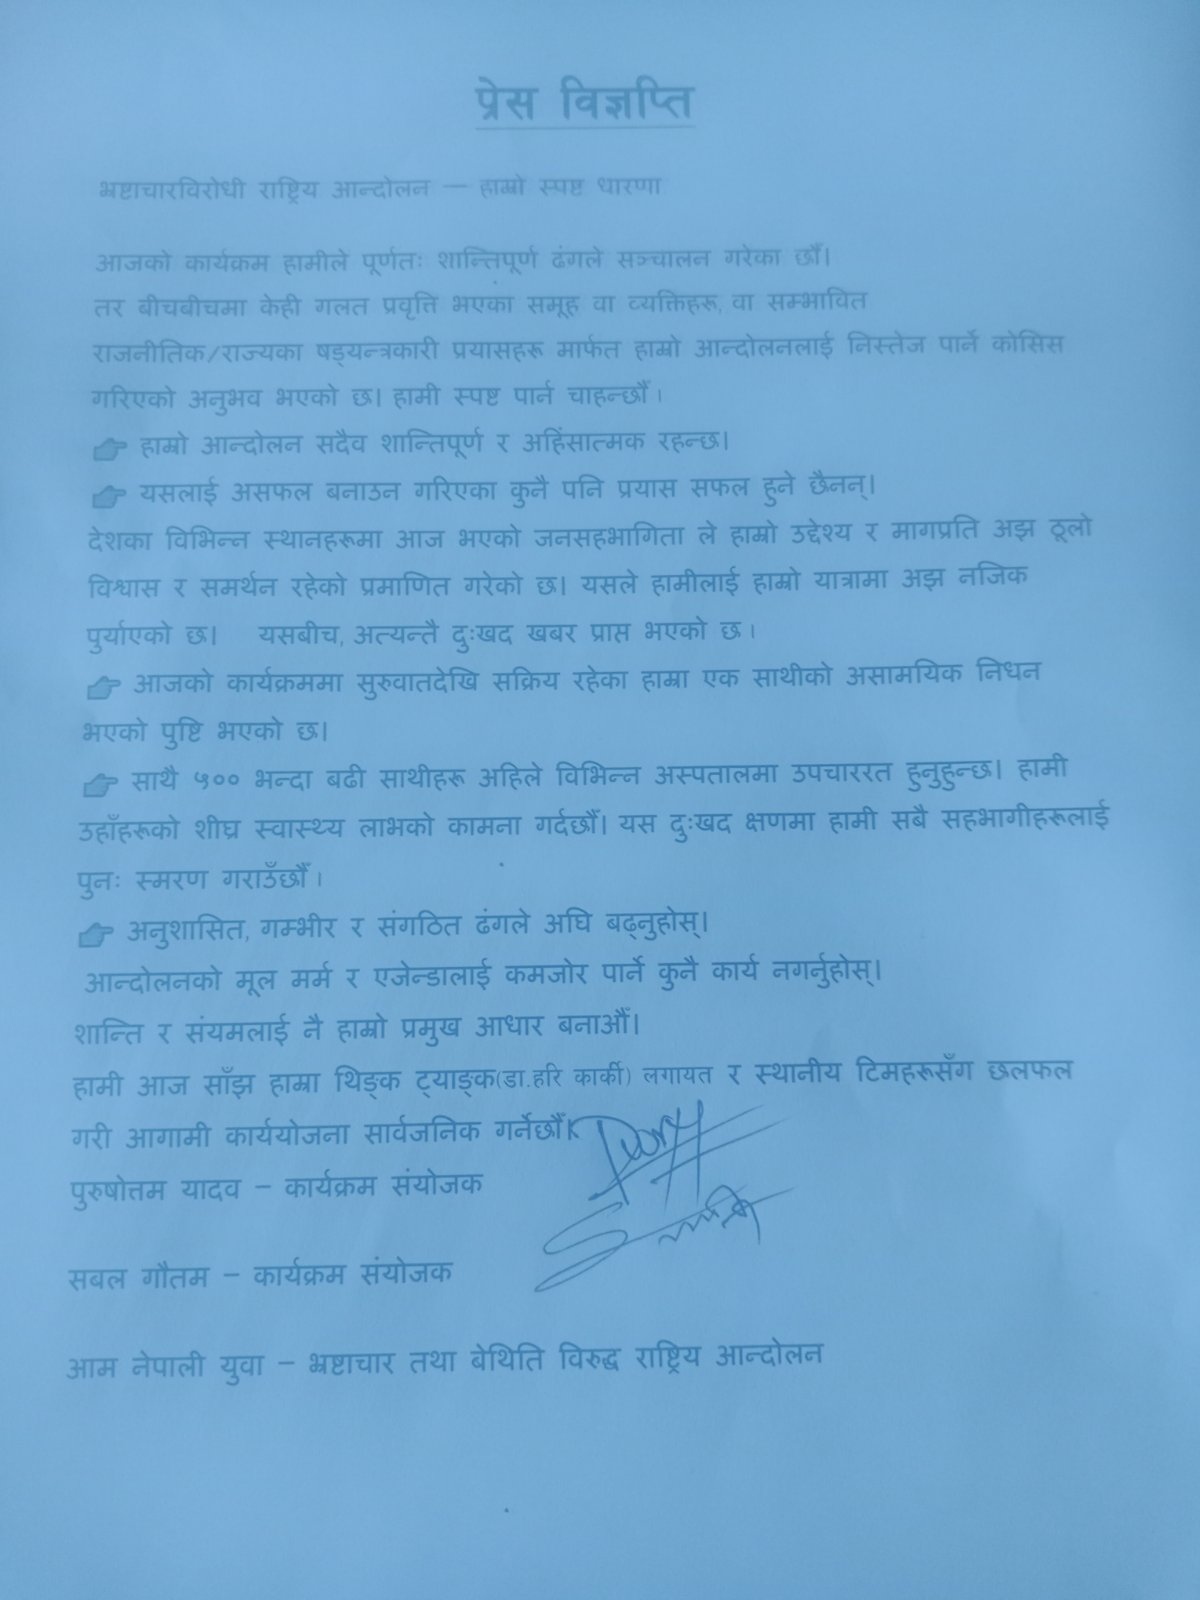 प्रेस विज्ञप्ति
भ्रष्टाचारविरोधी राष्ट्रिय आन्दोलन — हाम्रो स्पष्ट धारणा
आजको कार्यक्रम हामीले पूर्णतः शान्तिपूर्ण ढंगले सञ्चालन गरेका छौं।
तर बीचबीचमा केही गलत प्रवृत्ति भएका समूह वा व्यक्तिहरू, वा सम्भावित
राजनीतिक/राज्यका षड्यन्त्रकारी प्रयासहरू मार्फत हाम्रो आन्दोलनलाई निस्तेज पार्ने कोसिस
गरिएको अनुभव भएको छ। हामी स्पष्ट पार्न चाहन्छौं ।
👉 हाम्रो आन्दोलन सदैव शान्तिपूर्ण र अहिंसात्मक रहन्छ।
👉 यसलाई असफल बनाउन गरिएका कुनै पनि प्रयास सफल हुने छैनन्।
देशका विभिन्न स्थानहरूमा आज भएको जनसहभागिता ले हाम्रो उद्देश्य र मागप्रति अझ ठूलो
विश्वास र समर्थन रहेको प्रमाणित गरेको छ। यसले हामीलाई हाम्रो यात्रामा अझ नजिक
पुर्याएको छ। यसबीच, अत्यन्तै दुःखद खबर प्राप्त भएको छ ।
👉 आजको कार्यक्रममा सुरुवातदेखि सक्रिय रहेका हाम्रा एक साथीको असामयिक निधन
भएको पुष्टि भएको छ।
👉 साथै ५०० भन्दा बढी साथीहरू अहिले विभिन्न अस्पतालमा उपचाररत हुनुहुन्छ। हामी
उहाँहरूको शीघ्र स्वास्थ्य लाभको कामना गर्दछौं। यस दुःखद क्षणमा हामी सबै सहभागीहरूलाई
पुनः स्मरण गराउँछौं ।
👉 अनुशासित, गम्भीर र संगठित ढंगले अघि बढ्नुहोस्।
आन्दोलनको मूल मर्म र एजेन्डालाई कमजोर पार्ने कुनै कार्य नगर्नुहोस्।
शान्ति र संयमलाई नै हाम्रो प्रमुख आधार बनाऔं।
हामी आज साँझ हाम्रा थिङ्क ट्याङ्क(डा.हरि कार्की) लगायत र स्थानीय टिमहरूसँग छलफल
गरी आगामी कार्ययोजना सार्वजनिक गर्नेछौं।
पुरुषोत्तम यादव – कार्यक्रम संयोजक
सबल गौतम – कार्यक्रम संयोजक
आम नेपाली युवा – भ्रष्टाचार तथा बेथिति विरुद्ध राष्ट्रिय आन्दोलन